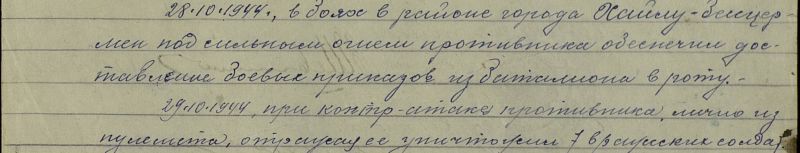 28.10.1944г., в боях в районе города Хайду-бесцер-
мен под сильным огнем противника обеспечил дос-
тавление боевых приказов из баталиона в роту.-
29.10.1944, при контр-атаке противника, лично из
пулемета, отражая ее уничтожил 7 вражеских солдат.